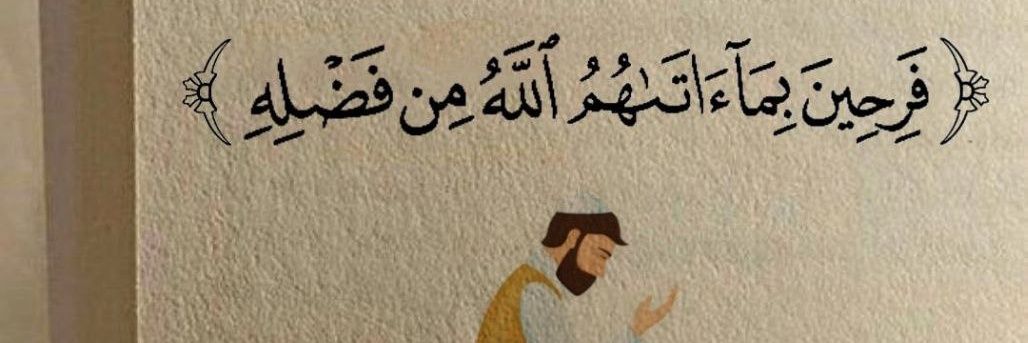 ﴿ فَرِحِينَ بِمَآ ءَاتَىٰهُمُ ٱللَّهُ مِن فَضْلِهِ ﴾